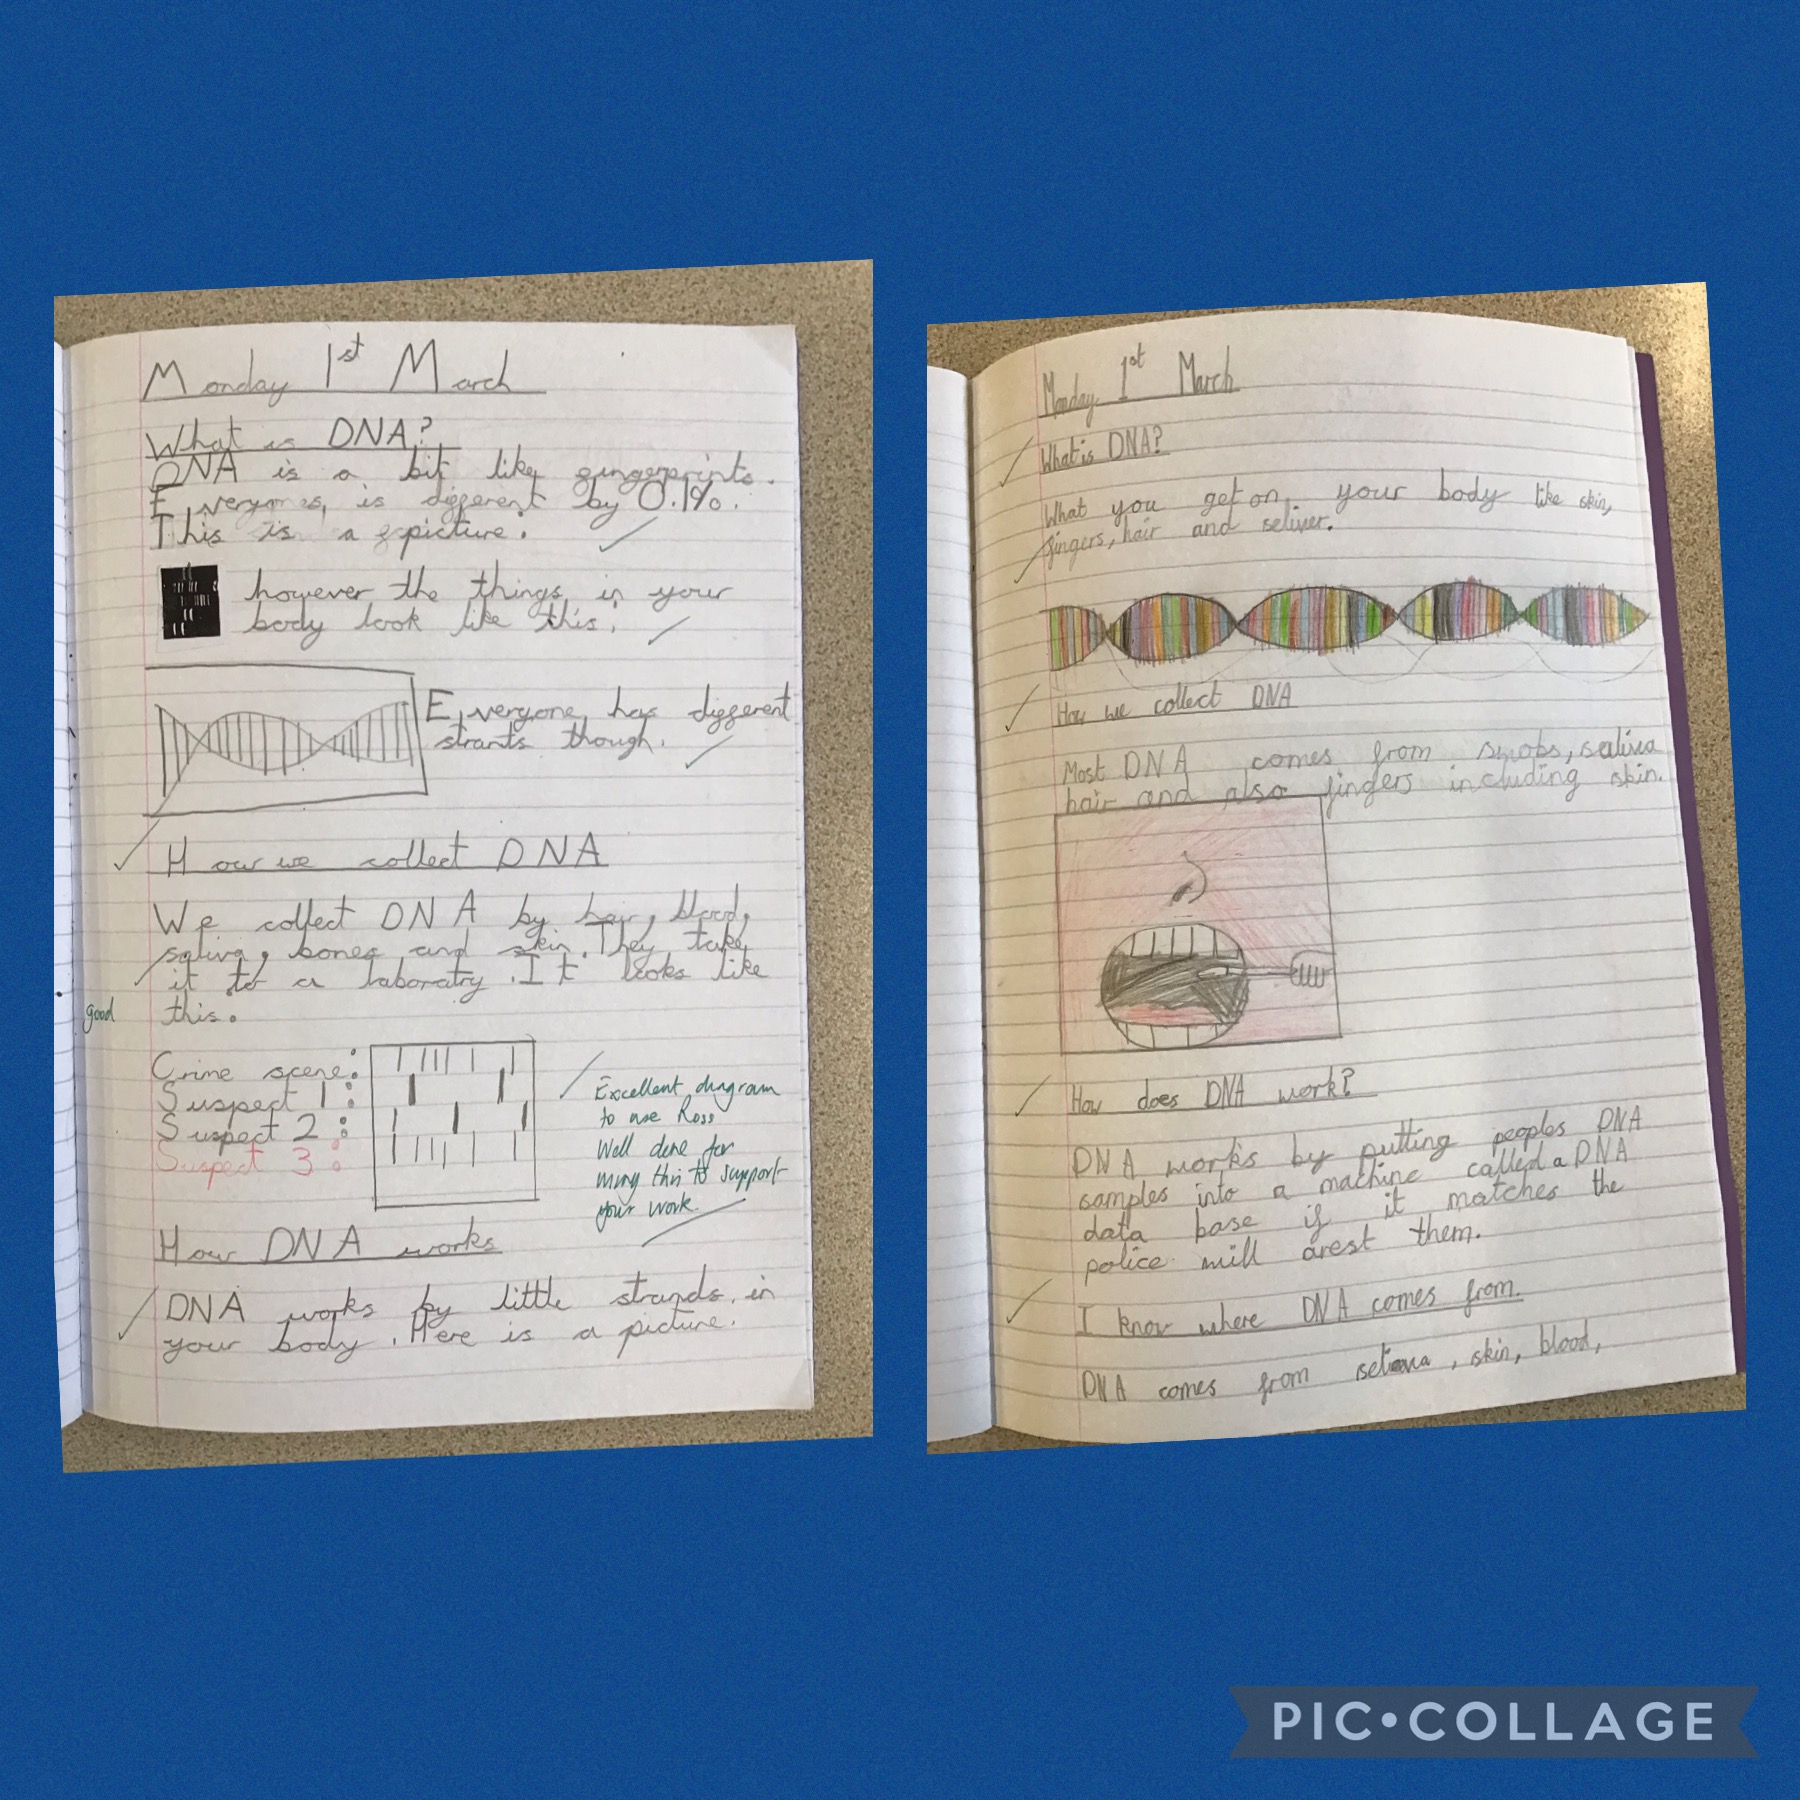 Monday 1st March
What is DNA?
DNA is a bit like fingerprints.
Everyones, is different by 0.1%.
This is a picture.
however the things in your
body look like this.
Everyone has different
strants though.
How we collect DNA
We collect DNA by hair, blood,
saliva, bones and skin. They take
it to a laboratry. It looks like
this.
good
Crime scene:
Suspect 1:
Suspect 2:
Suspect 3:
Excellent diagram
to use Ross
Well done for
using this to support
your work.
How DNA works
DNA works by little strands in
your body. Here is a picture.
Monday 1st March
What is DNA?
What you get on your body like skin,
fingers, hair and seliver.
How we collect DNA
Most DNA comes from swobs, saliva
hair and also fingers including skin.
How does DNA work?
DNA works by putting peoples DNA
samples into a machine called a DNA
data base if it matches the
police will arest them.
I know where DNA comes from.
DNA comes from skin, blood,
PIC•COLLAGE